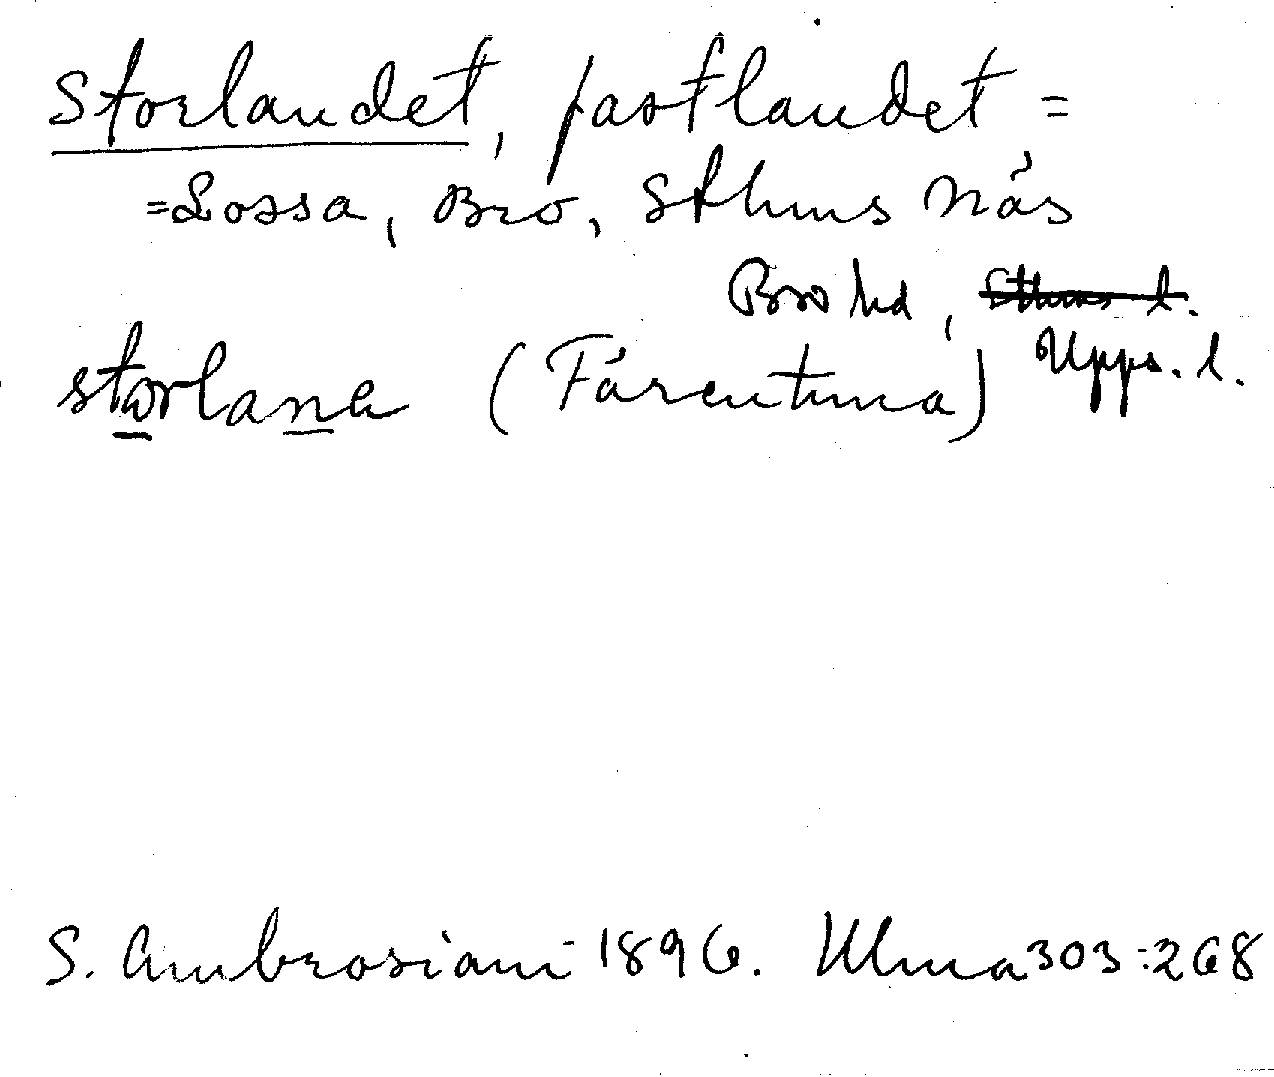 Storlandet, fastlandet =
=Lossa, Bro, Sthms Näs
Bro hd, Sthms l.
Upps. l.
storlana (Färentuna)
S. Ambrosiani 1896. Ulma 303:268